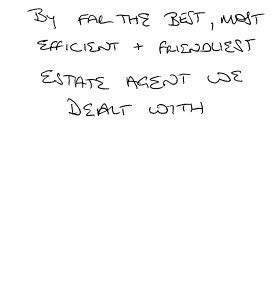 BY FAR THE BEST, MOST
EFFICIENT + FRIENDLIEST
ESTATE AGENT WE
DEALT WITH